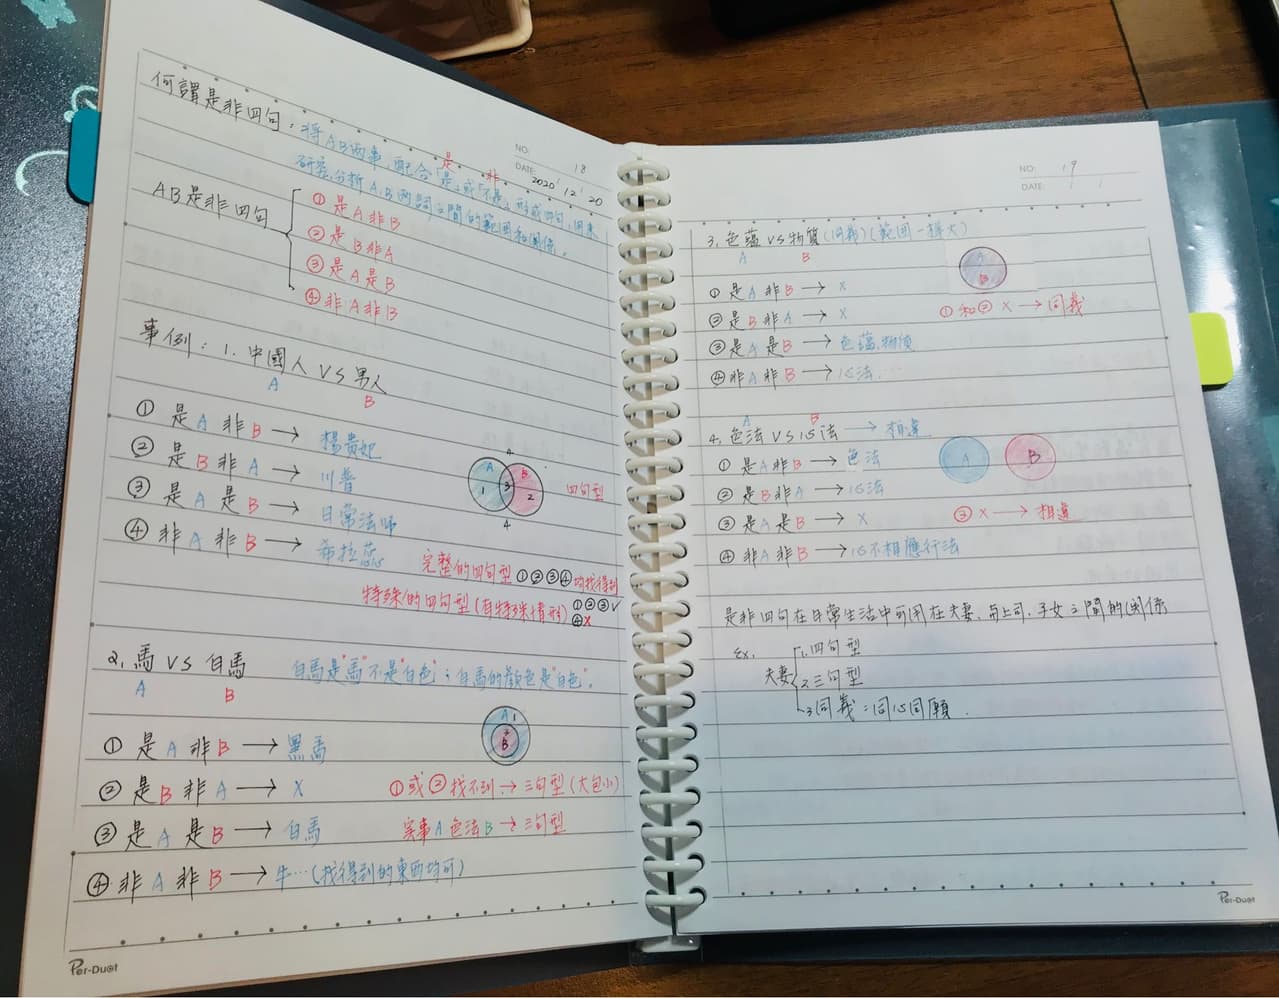 NO. 18
DATE 2020 / 12 / 20
何謂是非四句：將AB兩事，配合「是」或「不是」形成四句，用來
是 非
研究分析A.B兩詞之間的範圍和關係。
AB是非四句
①是A非B
②是B非A
③是A是B
④非A非B
事例：1.中國人 VS 男人
A B
① 是 A 非 B → 楊貴妃
② 是 B 非 A → 川普
③ 是 A 是 B → 日常法師
④ 非 A 非 B → 希拉蕊
4
A B
1 3 2
4
四句型
完整的四句型①②③④均找得到
特殊的四句型(有特殊情形)①②③✓
④X
2.馬 VS 白馬 白馬是"馬"不是"白色"；白馬的顏色是"白色"。
A B
① 是 A 非 B → 黑馬
② 是 B 非 A → X
③ 是 A 是 B → 白馬
④ 非 A 非 B → 牛…(找得到的東西均可)
A 1
3
B
①或②找不到→三句型(大包小)
實事A 色法B → 三句型
Per-Duet
NO. 19
DATE / /
3.色蘊 VS 物質(同義)(範圍一樣大)
A B
① 是 A 非 B → X
② 是 B 非 A → X
③ 是 A 是 B → 色蘊、物質
④ 非 A 非 B → 心法.
B
①和② X → 同義
A B
4.色法 VS 心法 → 相違
① 是 A 非 B → 色法
② 是 B 非 A → 心法
③ 是 A 是 B → X
④ 非 A 非 B → 心不相應行法
A B
③ X → 相違
是非四句在日常生活中可用在夫妻、與上司、子女之間的關係
Ex.
夫妻
1.四句型
2.三句型
3.同義：同心同願.
Per-Duet